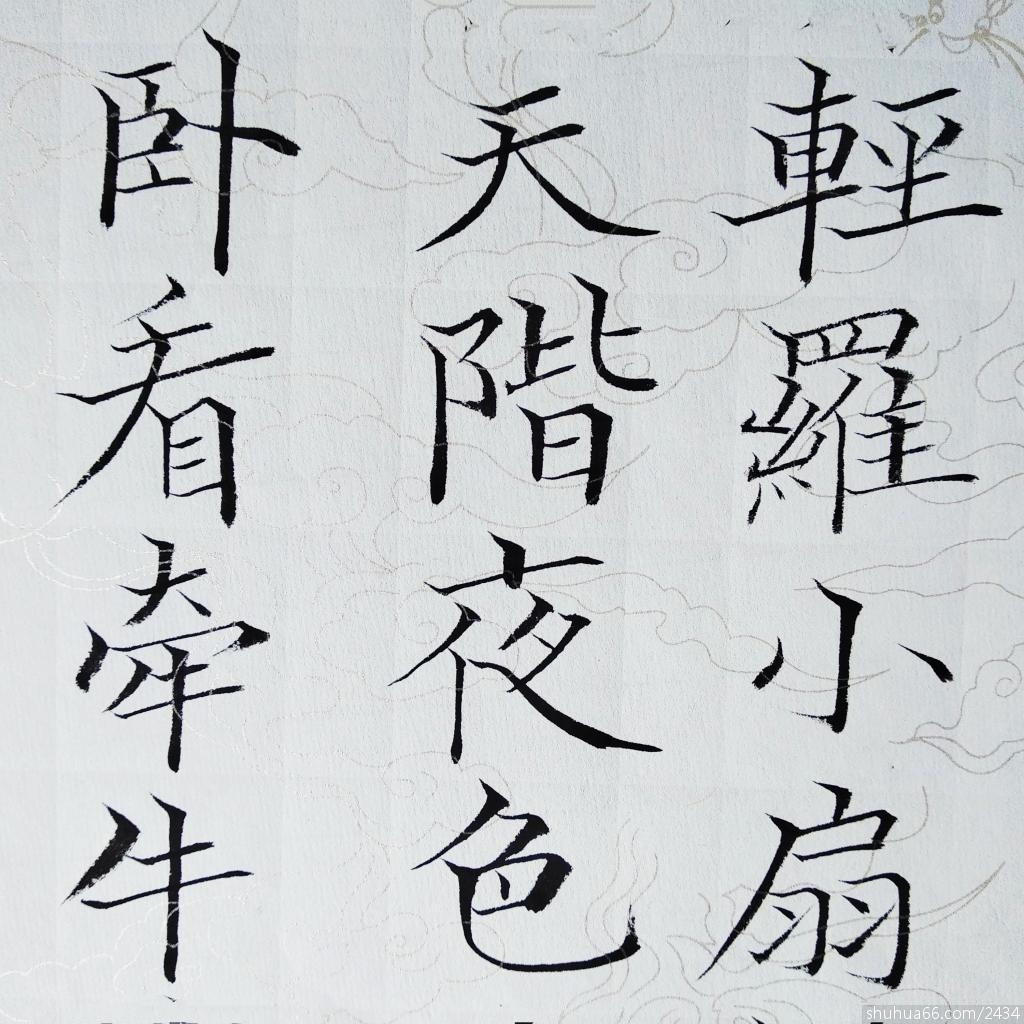 輕羅小扇
天階夜色
卧看牽牛
shuhua66.com/2434